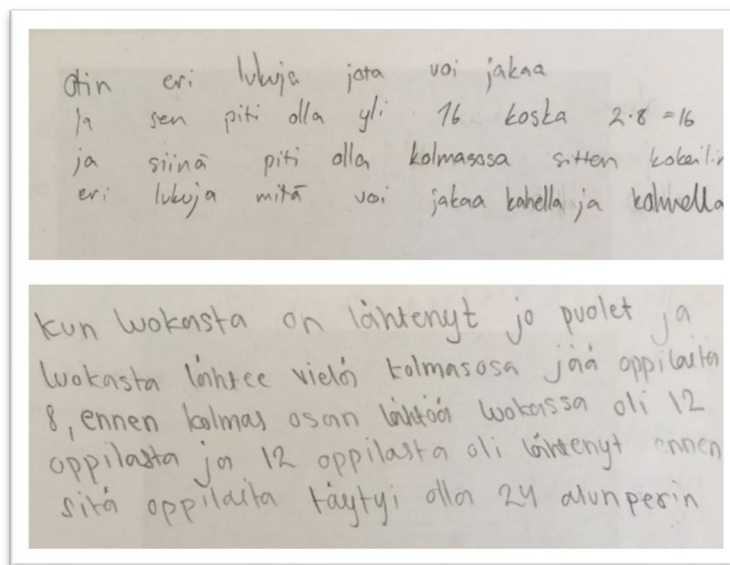 otin eri lukuja jota voi jakaa
ja sen piti olla yli 16 koska 2·8=16
ja siinä piti olla kolmasosa sitten kokeilin
eri lukuja mitä voi jakaa kahella ja kolmella
kun luokasta on lähtenyt jo puolet ja
luokasta lähtee vielä kolmasosa jää oppilaita
8, ennen kolmas osan lähtöä luokassa oli 12
oppilasta ja 12 oppilasta oli lähtenyt ennen
sitä oppilaita täytyi olla 24 alunperin